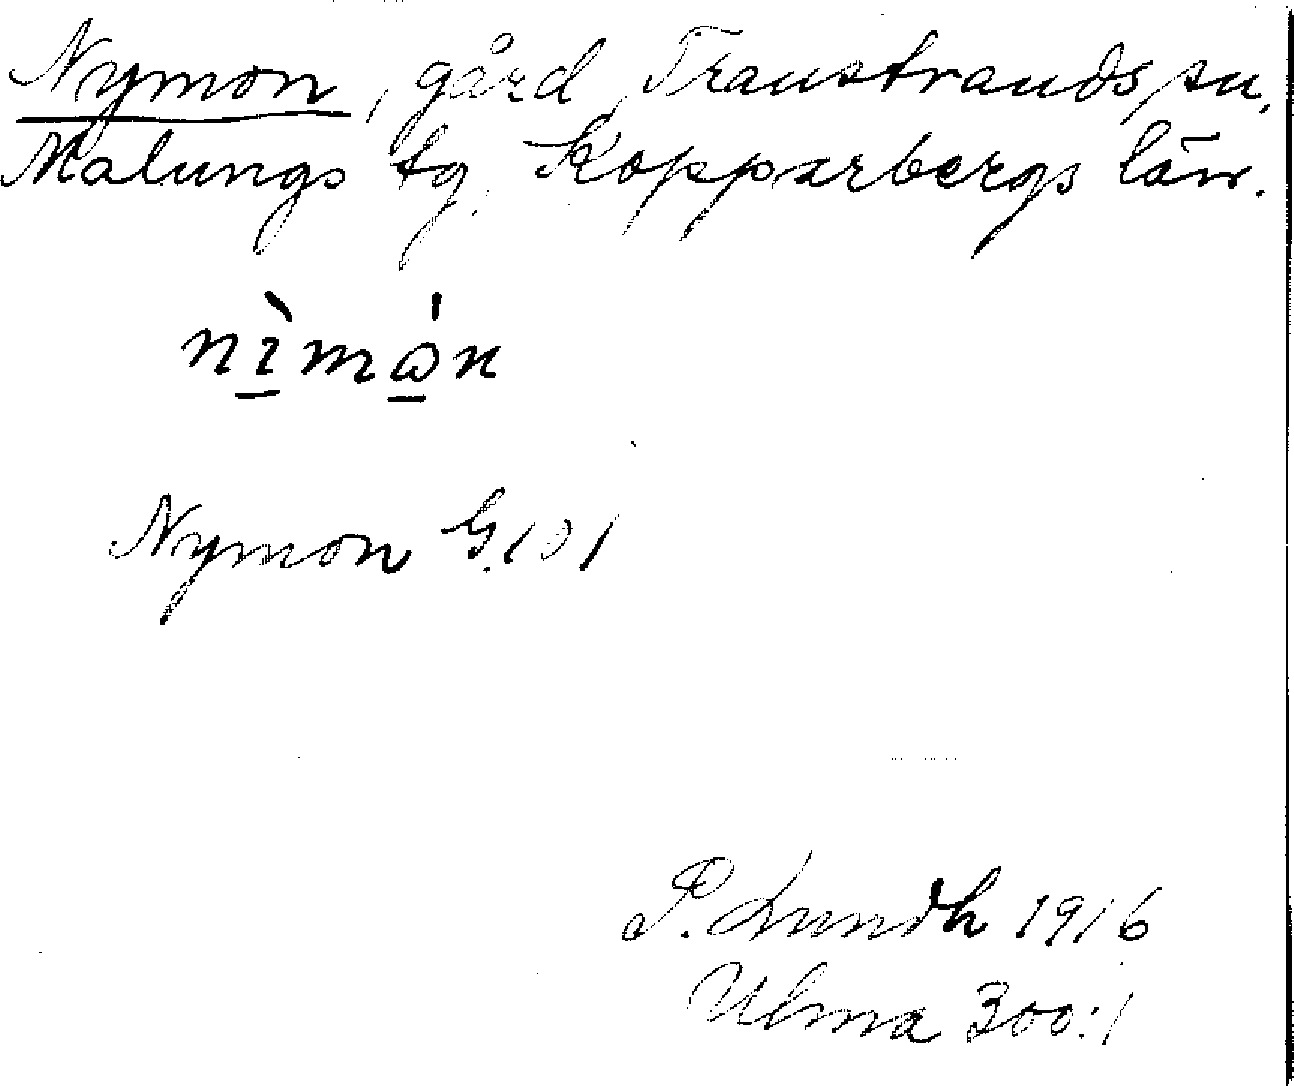 Nymon, gård, Transtrands sn,
Malungs tg. Kopparbergs län.
nìmón
Nymon G.101
P. Lundh 1916
Ulma 300:1